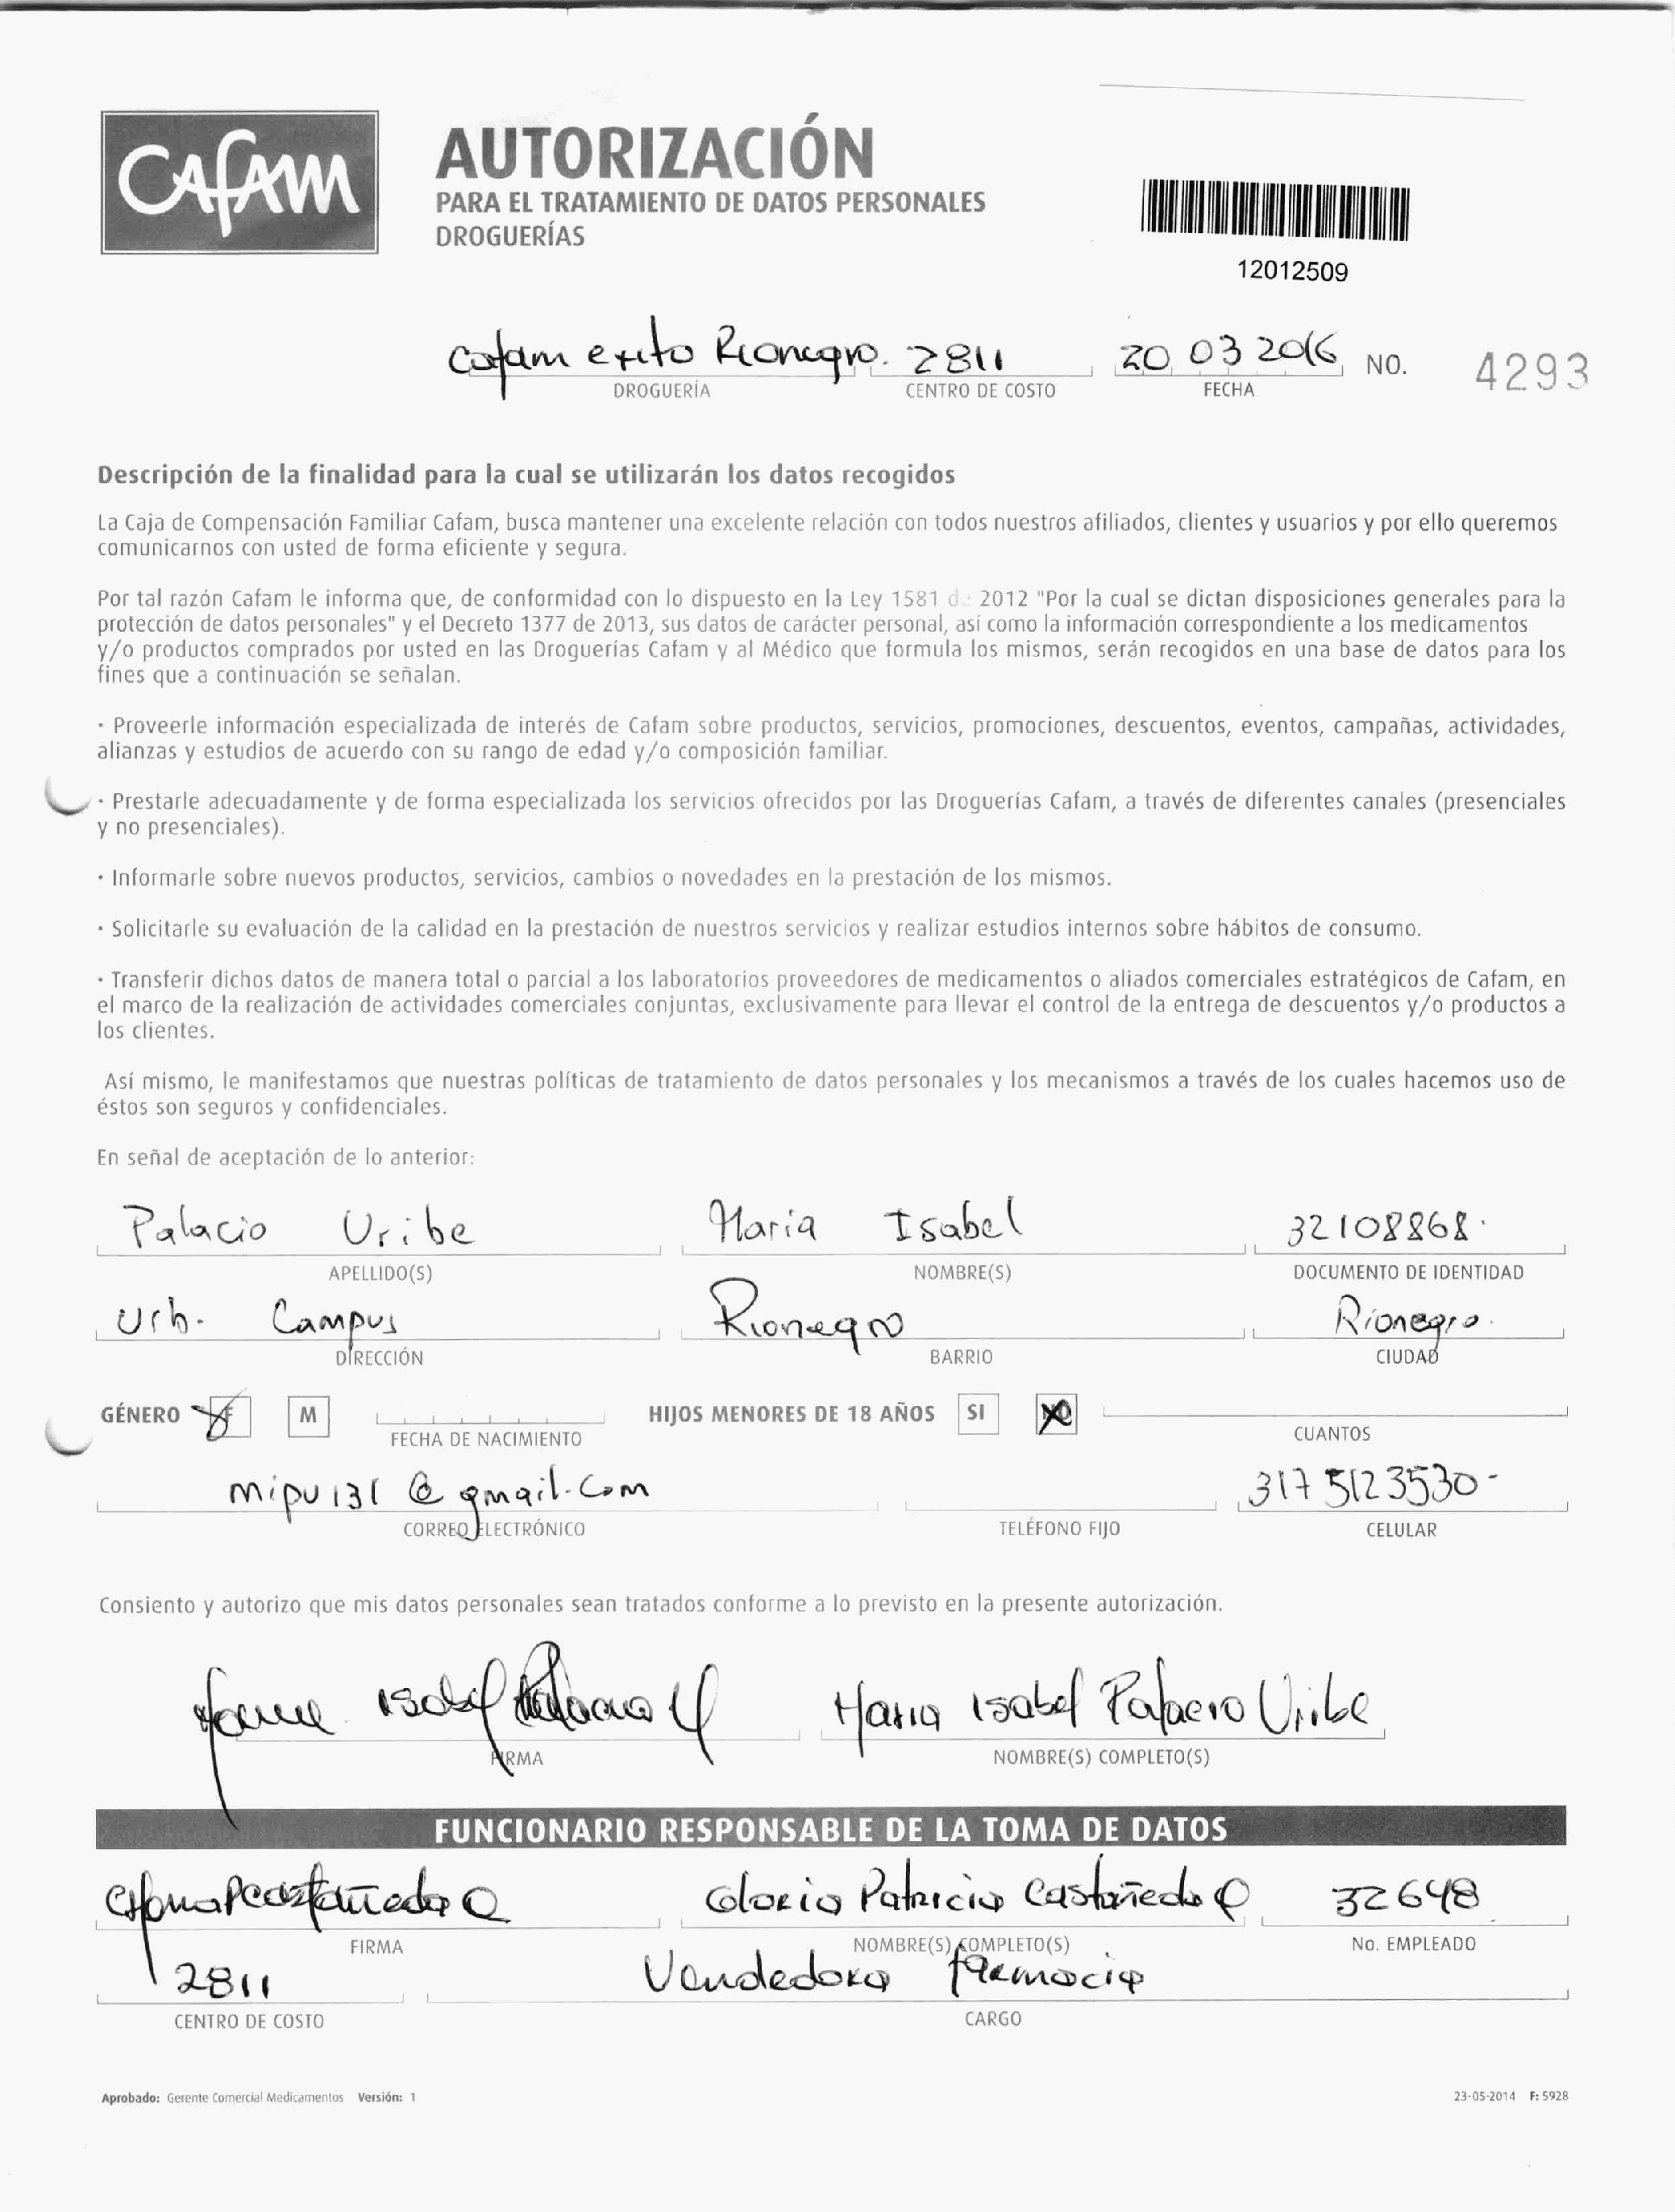 CAFAM
AUTORIZACIÓN
PARA EL TRATAMIENTO DE DATOS PERSONALES
DROGUERÍAS
12012509
Cafam exito Rionegro. 2811 20 03 2016 NO. 4293
DROGUERÍA CENTRO DE COSTO FECHA
Descripción de la finalidad para la cual se utilizarán los datos recogidos
La Caja de Compensación Familiar Cafam, busca mantener una excelente relación con todos nuestros afiliados, clientes y usuarios y por ello queremos
comunicarnos con usted de forma eficiente y segura.
Por tal razón Cafam le informa que, de conformidad con lo dispuesto en la Ley 1581 de 2012 "Por la cual se dictan disposiciones generales para la
protección de datos personales" y el Decreto 1377 de 2013, sus datos de carácter personal, así como la información correspondiente a los medicamentos
y/o productos comprados por usted en las Droguerías Cafam y al Médico que formula los mismos, serán recogidos en una base de datos para los
fines que a continuación se señalan.
· Proveerle información especializada de interés de Cafam sobre productos, servicios, promociones, descuentos, eventos, campañas, actividades,
alianzas y estudios de acuerdo con su rango de edad y/o composición familiar.
· Prestarle adecuadamente y de forma especializada los servicios ofrecidos por las Droguerías Cafam, a través de diferentes canales (presenciales
y no presenciales).
· Informarle sobre nuevos productos, servicios, cambios o novedades en la prestación de los mismos.
· Solicitarle su evaluación de la calidad en la prestación de nuestros servicios y realizar estudios internos sobre hábitos de consumo.
· Transferir dichos datos de manera total o parcial a los laboratorios proveedores de medicamentos o aliados comerciales estratégicos de Cafam, en
el marco de la realización de actividades comerciales conjuntas, exclusivamente para llevar el control de la entrega de descuentos y/o productos a
los clientes.
Así mismo, le manifestamos que nuestras políticas de tratamiento de datos personales y los mecanismos a través de los cuales hacemos uso de
éstos son seguros y confidenciales.
En señal de aceptación de lo anterior:
Palacio Uribe Maria Isabel 32108868.
APELLIDO(S) NOMBRE(S) DOCUMENTO DE IDENTIDAD
Urb. Campus Rionegro Rionegro.
DIRECCIÓN BARRIO CIUDAD
GÉNERO F M HIJOS MENORES DE 18 AÑOS SI NO
FECHA DE NACIMIENTO CUANTOS
mipu131@gmail.com 3175123530-
CORREO ELECTRÓNICO TELÉFONO FIJO CELULAR
Consiento y autorizo que mis datos personales sean tratados conforme a lo previsto en la presente autorización.
Isabel Palacio U Maria Isabel Palacio Uribe
FIRMA NOMBRE(S) COMPLETO(S)
FUNCIONARIO RESPONSABLE DE LA TOMA DE DATOS
Gloria Patricia Castañeda Q 32648
FIRMA NOMBRE(S) COMPLETO(S) No. EMPLEADO
2811 Vendedora farmacia
CENTRO DE COSTO CARGO
Aprobado: Gerente Comercial Medicamentos Versión: 1 23-05-2014 F: 5928